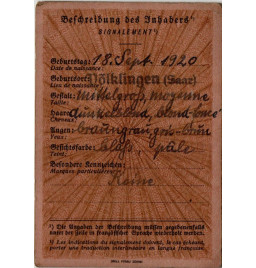 Beschreibung des Inhabers¹)
SIGNALEMENT¹)
Geburtstag: 18. Sept 1920
Date de naissance:
Geburtsort: Völklingen (Saar)
Lieu de naissance:
Gestalt: mittelgroß, moyenne
Taille:
Haare: dunkelblond, blond-foncé
Cheveux:
Augen: braungrau, gris-brun
Yeux:
Gesichtsfarbe: blaß, pâle
Teint:
Besondere Kennzeichen:
Marques particulières:
Keine
¹) Die Angaben der Beschreibung müssen gegebenenfalls
unter der Zeile in französischer Sprache wiederholt werden.
¹) Les indications du signalement doivent, le cas échéant,
porter une traduction interlinéaire en langue française.